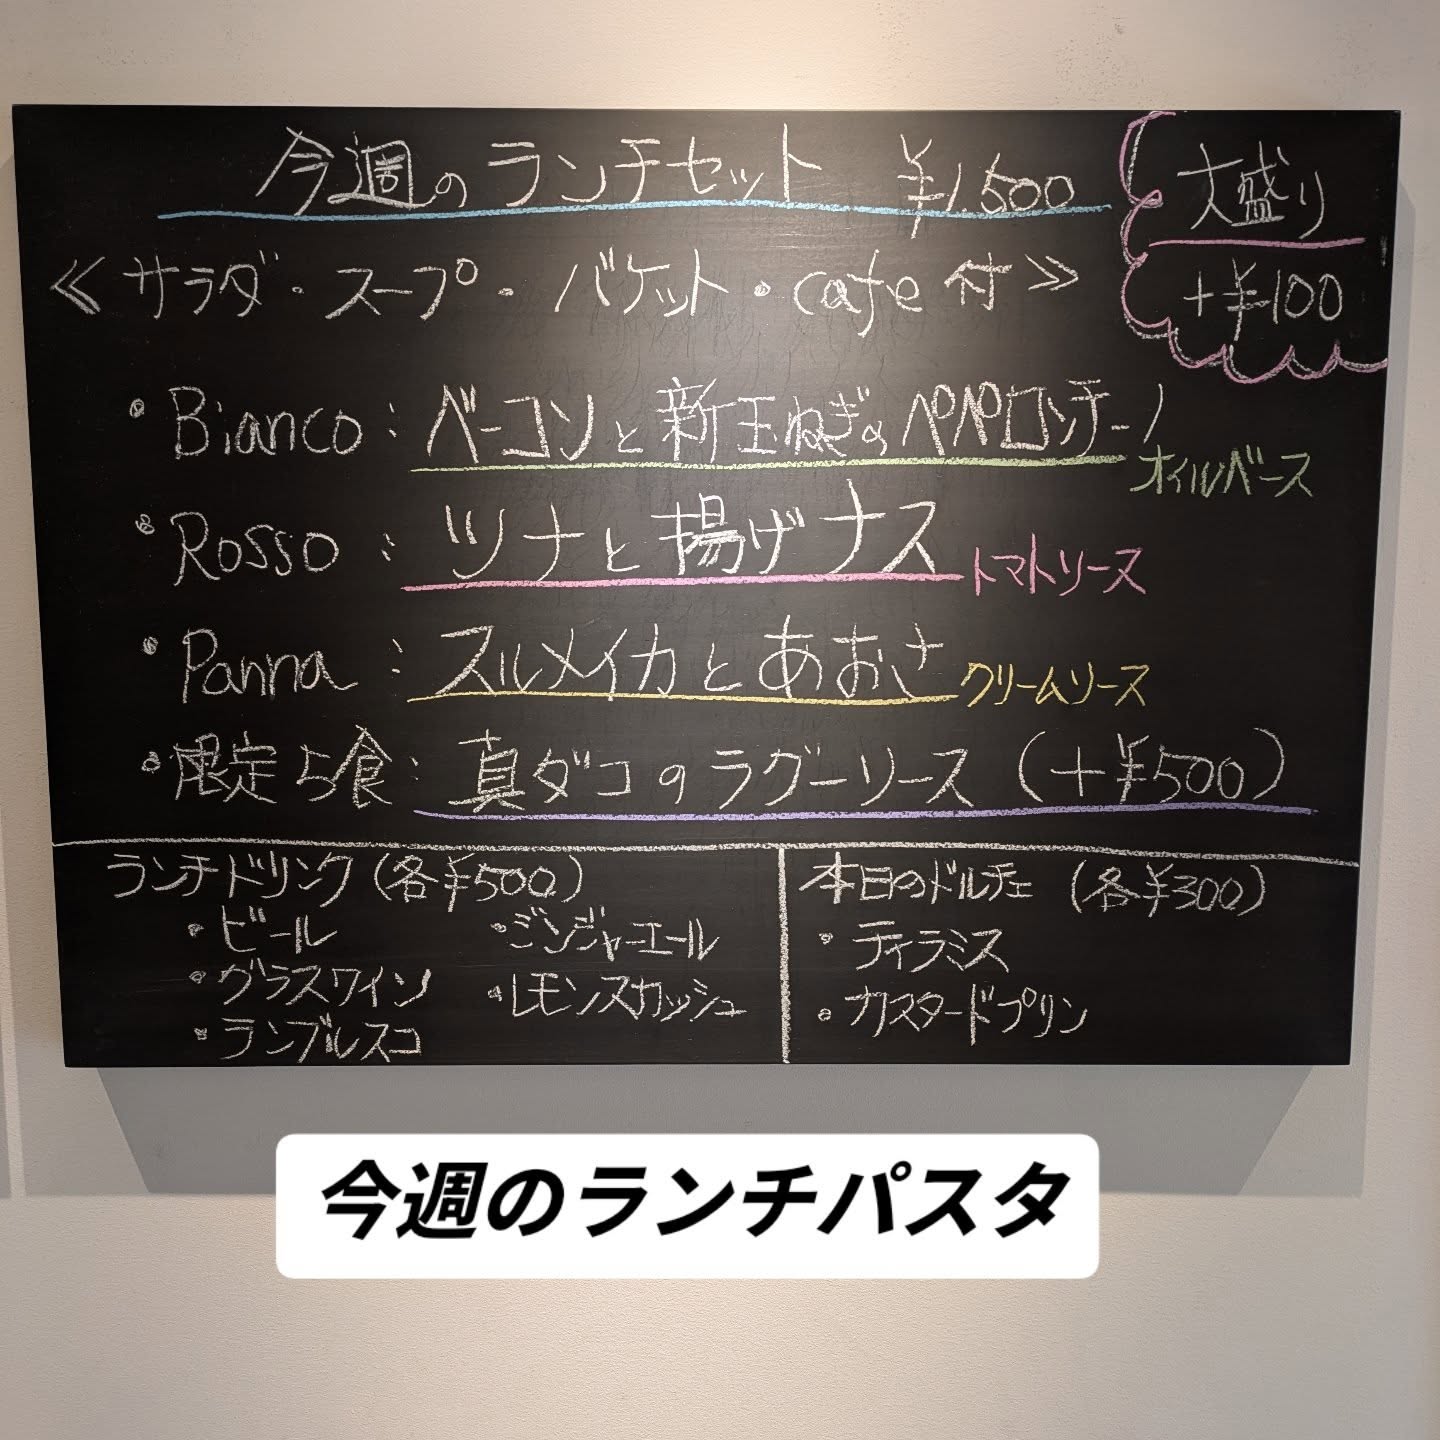 今週のランチセット ¥1,500
大盛り
+¥100
≪サラダ・スープ・バケット・cafe付≫
・Bianco:ベーコンと新玉ねぎのペペロンチーノ
オイルベース
・Rosso:ツナと揚げナス トマトソース
・Panna:スルメイカとあおさ クリームソース
・限定5食:真ダコのラグーソース(+¥500)
ランチドリンク(各¥500)
・ビール
・グラスワイン
・ランブルスコ
・ジンジャーエール
・レモンスカッシュ
本日のドルチェ(各¥300)
・ティラミス
・カスタードプリン
今週のランチパスタ